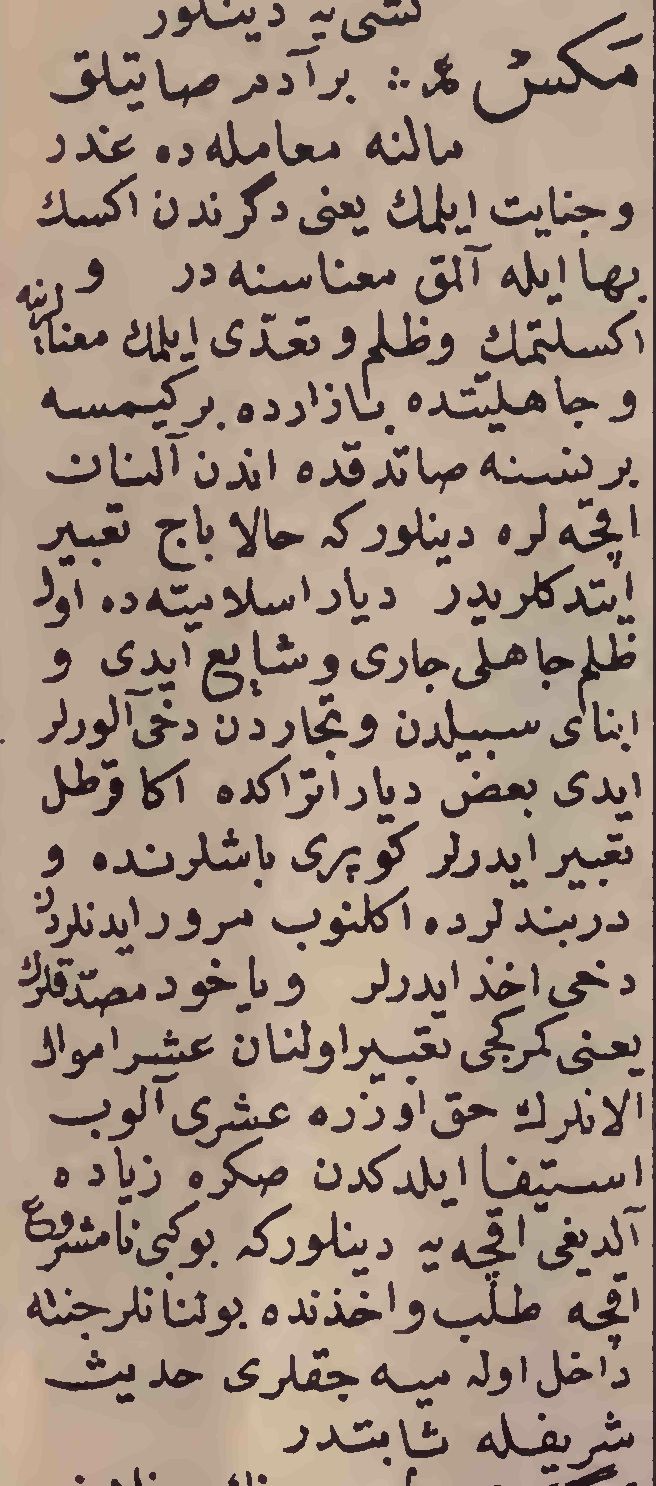 نسی یه دینلور
مکس عر ∴ بر آدمه صاتیلق
مالنه معامله ده غدر
وجنایت ایلمك یعنی دگرندن اکسك
بها ایله آلمق معناسنه در و
اکسلتمك وظلم و تعدّی ایلمك معنالرینه
و جاهلیتده بازارده بر کیمسه
بر نسنه صاتدقده اندن آلنان
اقچه لره دینلور که حالا باج تعبیر
ایتدکلریدر دیار اسلامیته ده اول
ظلم جاهلی جاری و شایع ایدی و
ابنای سبیلدن و تجاردن دخی آلورلر
ایدی بعض دیار اتراکده اکا قرطل
تعبیر ایدرلر کوپری باشلرنده و
دربندلرده اکلنوب مرور ایدنلردن
دخی اخذ ایدرلر ویا خود مصدّقلرك
یعنی کمرکجی تعبیر اولنان عشر اموال
الانلرك حق اوزره عشری آلوب
استیفا ایلدکدن صکره زیاده
آلدیغی اقچه یه دینلور که بو کبی نامشروع
اقچه طلب و اخذنده بولنانلر جنته
داخل اوله میه جقلری حدیث
شریفله ثابتدر